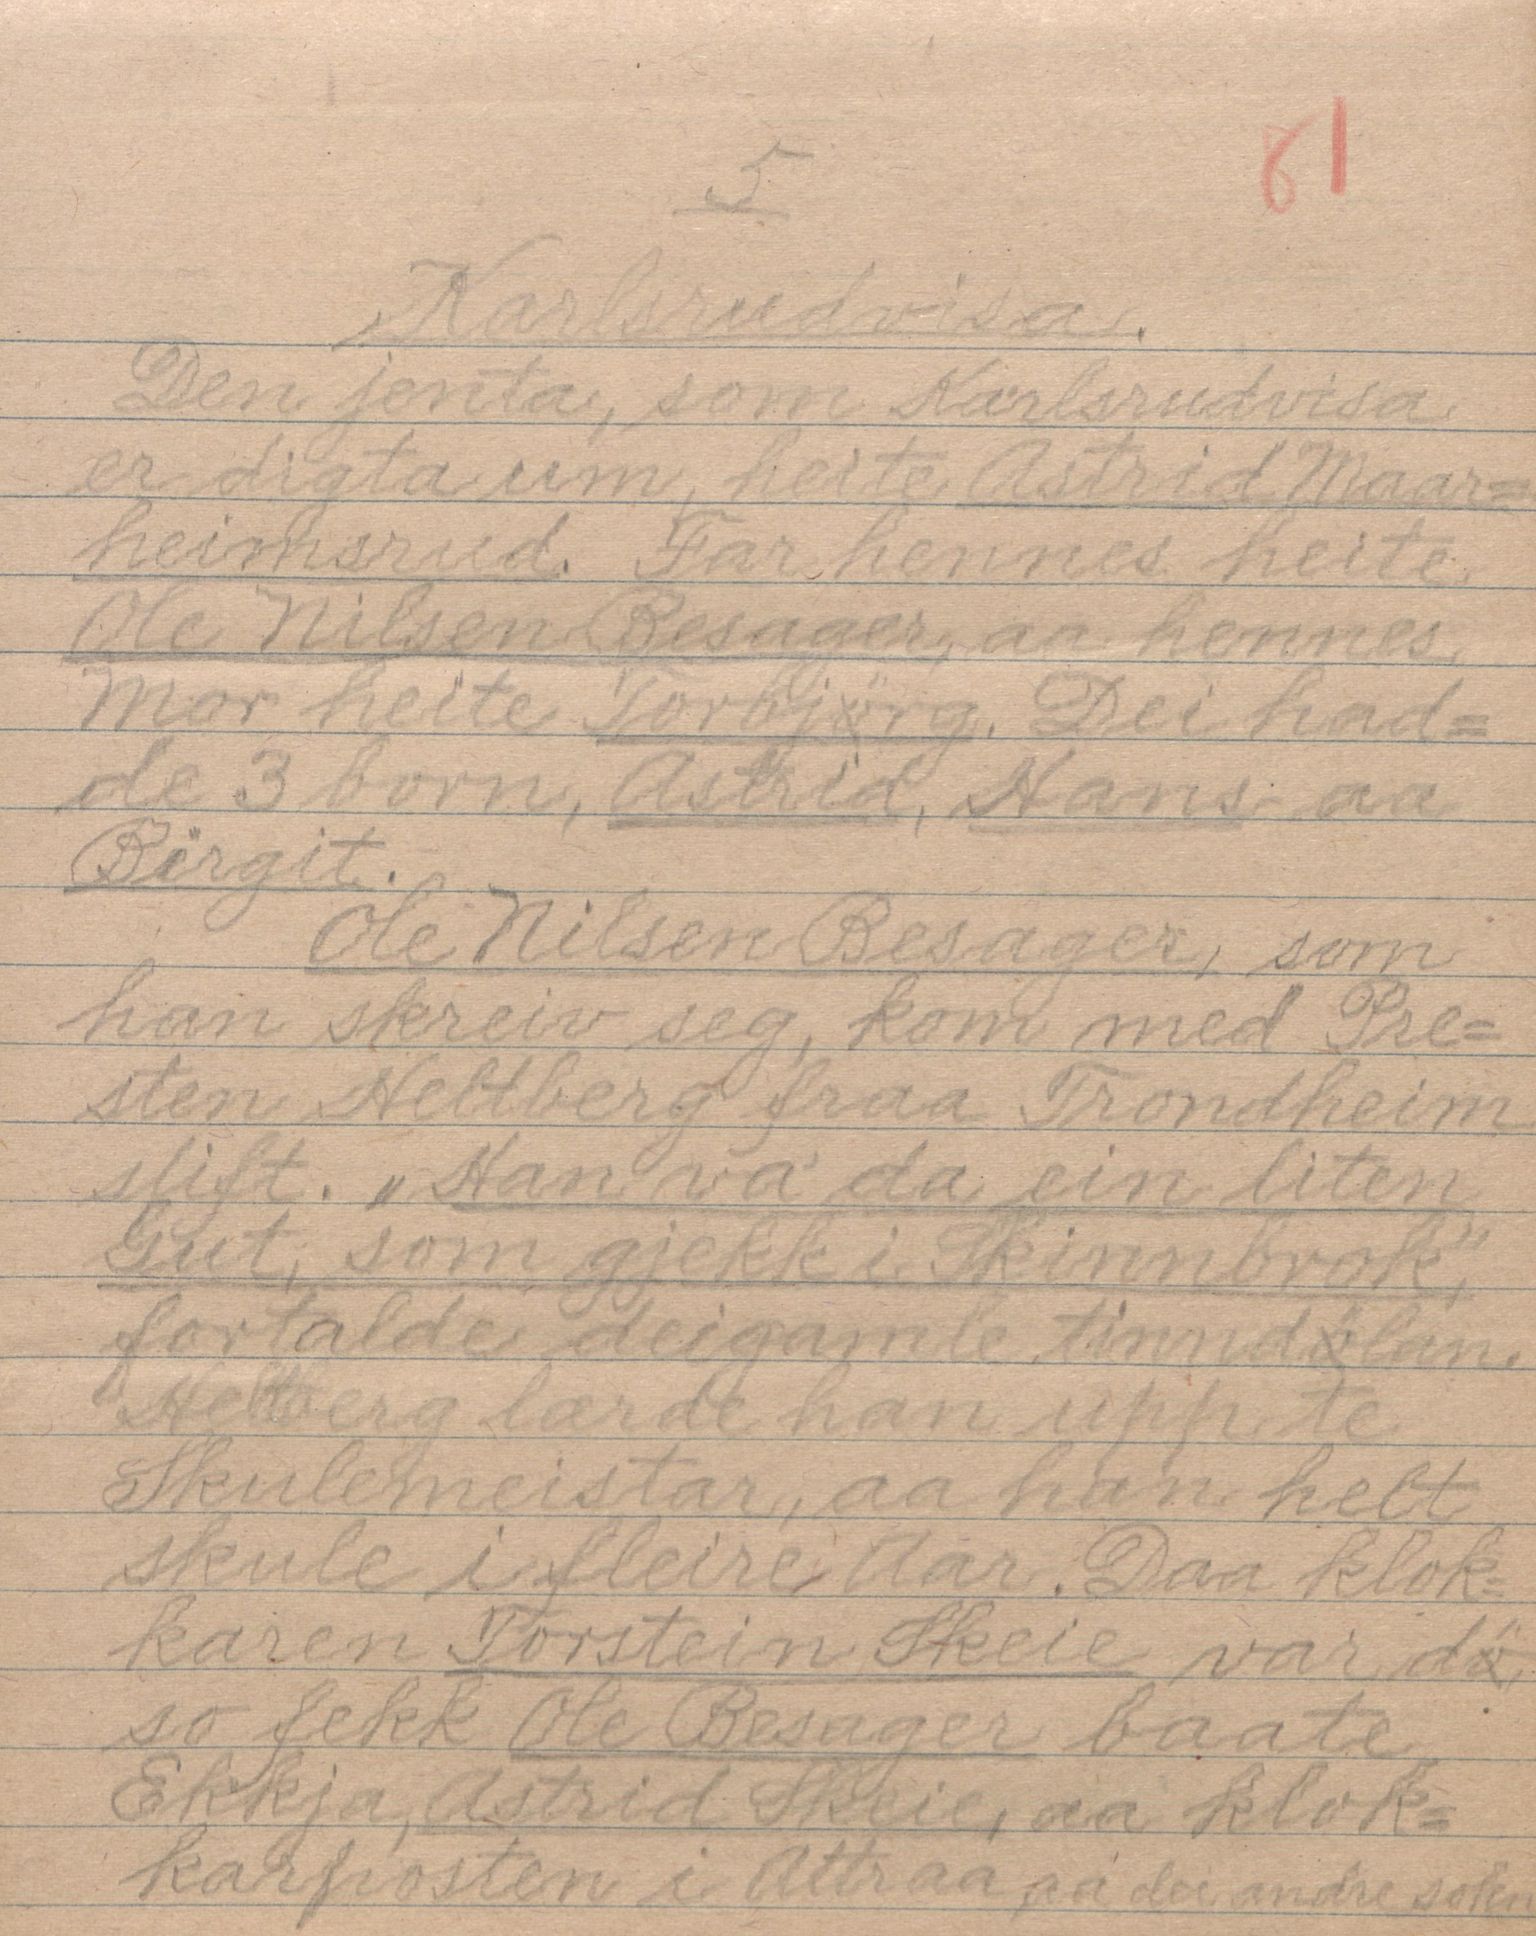 81
5
Karlsrudvisa.
Den jenta, som Karlsrudvisa
er digta um, heite Astrid Maar=
heimsrud. Far hennes heite
Ole Nilsen Besager, aa hennes
Mor heite Torbjörg. Dei had=
de 3 born, Astrid, Hans aa
Birgit.
Ole Nilsen Besager, som
han skreiv seg, kom med Pre=
sten Heltberg fraa Trondheim
stift. „Han va da ein liten
Gut, som gjekk i Skinnbrok",
fortalde dei gamle tinndölan.
Heltberg lærde han upp te
Skulemeistar, aa han helt
skule i fleire Aar. Daa klok=
karen Torstein Skeie var dö,
so fekk Ole Besager baate
Ekkja, Astrid Skeie, aa klok=
karposten i Attraa aa dei andre